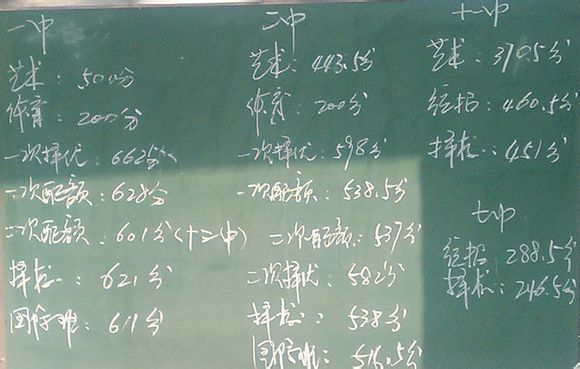 一中
艺术：500分
体育：200分
一次择优：662分
一次配额：628分
二次配额：601分(十二中)
择校：621分
国际班：611分
二中
艺术：443.5分
体育：200分
一次择优：598分
一次配额：538.5分
二次配额：537分
二次择优：582分
择校：538分
国际班：516.5分
十一中
艺术：370.5分
统招：460.5分
择校：451分
七中
统招 288.5分
择校：246.5分